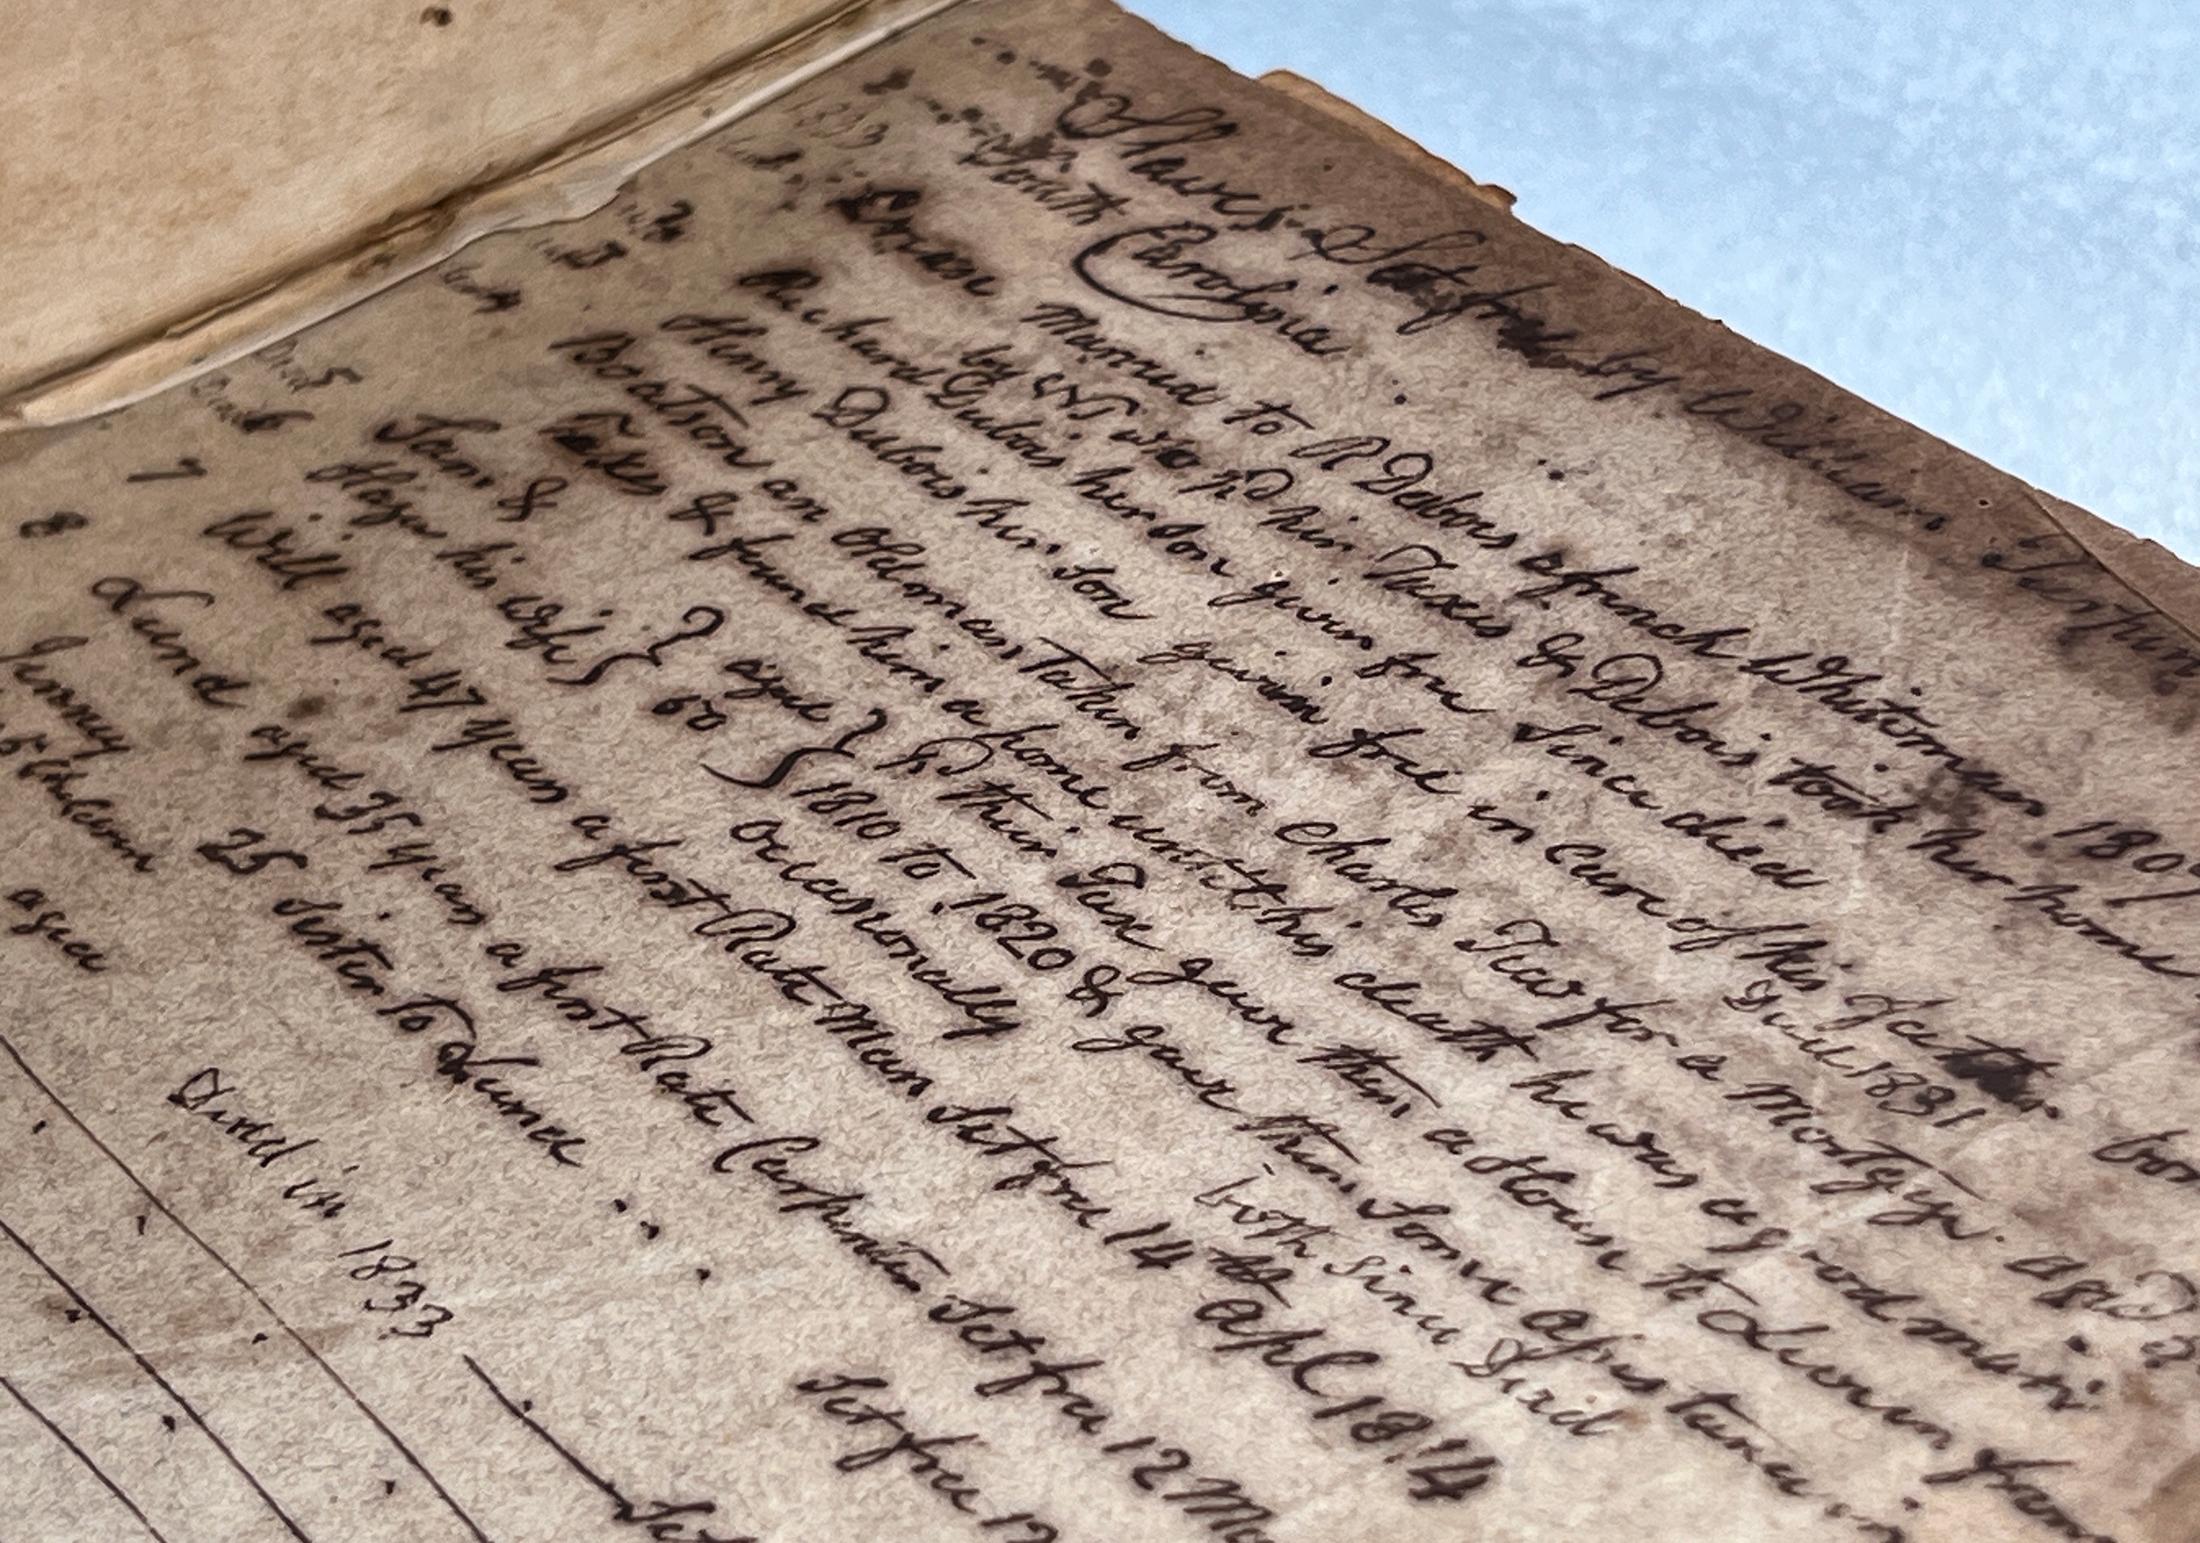 Slaves Set free by William Turpin
South Carolina
1833
Married to R Dubois a french Whitoman 180
by WT we pd his Taxes & Dubois took her home
No 2 Richard Dubois her son given free Since died
No 3 Henry Dubois her son given free in care of his Father born
Died 1831
Boatson an old man taken from Charles Tew for a Mortgge. aged
Taxes & found him a home untill his death he was a good man
No 5 Sam &
No 6 Hagar his Wife } aged 60 } pd their Tax gave them a House to Live in from
1810 to 1820 & gave them Some assistance in
occasionally both Since Died
7 Will aged 47 years a first Rate Man Set free 14th Apl 1814
8 Lund aged 35 years a first Rate Carpenter Set free 12 Ma
Jenney 25 Sister to Lund Set free 12
aged
Died in 1833
Set